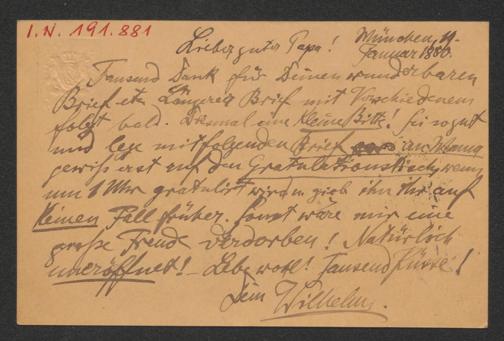 I.N. 191.881
Lieber guter Papa! München, 4.
Januar 1880.
Tausend Dank für Deinen wunderbaren
Brief etc. Längerer Brief mit Verschiedenem
folgt bald. Diesmal eine kleine Bitte! Sei so gut
und lege mitfolgenden Brief an Mama
gewiss erst auf den Gratulationstisch, wenn
um 1 Uhr gratulirt wird u. gieb ihn ihr auf
keinen Fall früher. Sonst wäre mir eine
große Freude verdorben! Natürlich
uneröffnet! – Lebe wohl! Tausend Küsse!
Dein Wilhelm.